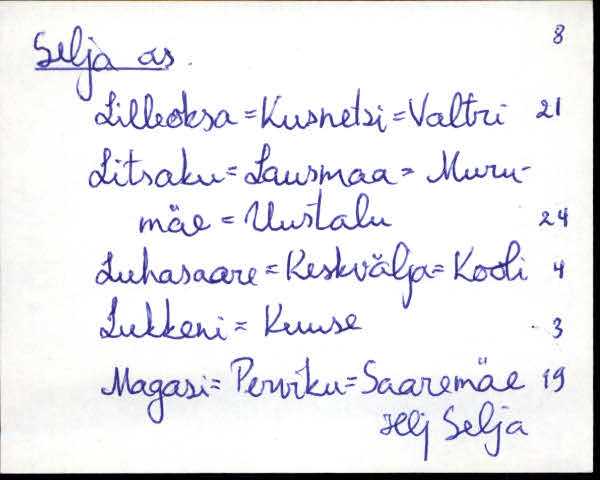 8
Selja as.
Lilleoksa = Kusnetsi = Valtri 21
Litsaku = Lausmaa = Muru-
mäe = Uustalu 24
Luhasaare = Keskvälja = Kooli 4
Lukkeni = Kuuse 3
Magasi = Perviku = Saaremäe 19
Hlj Selja